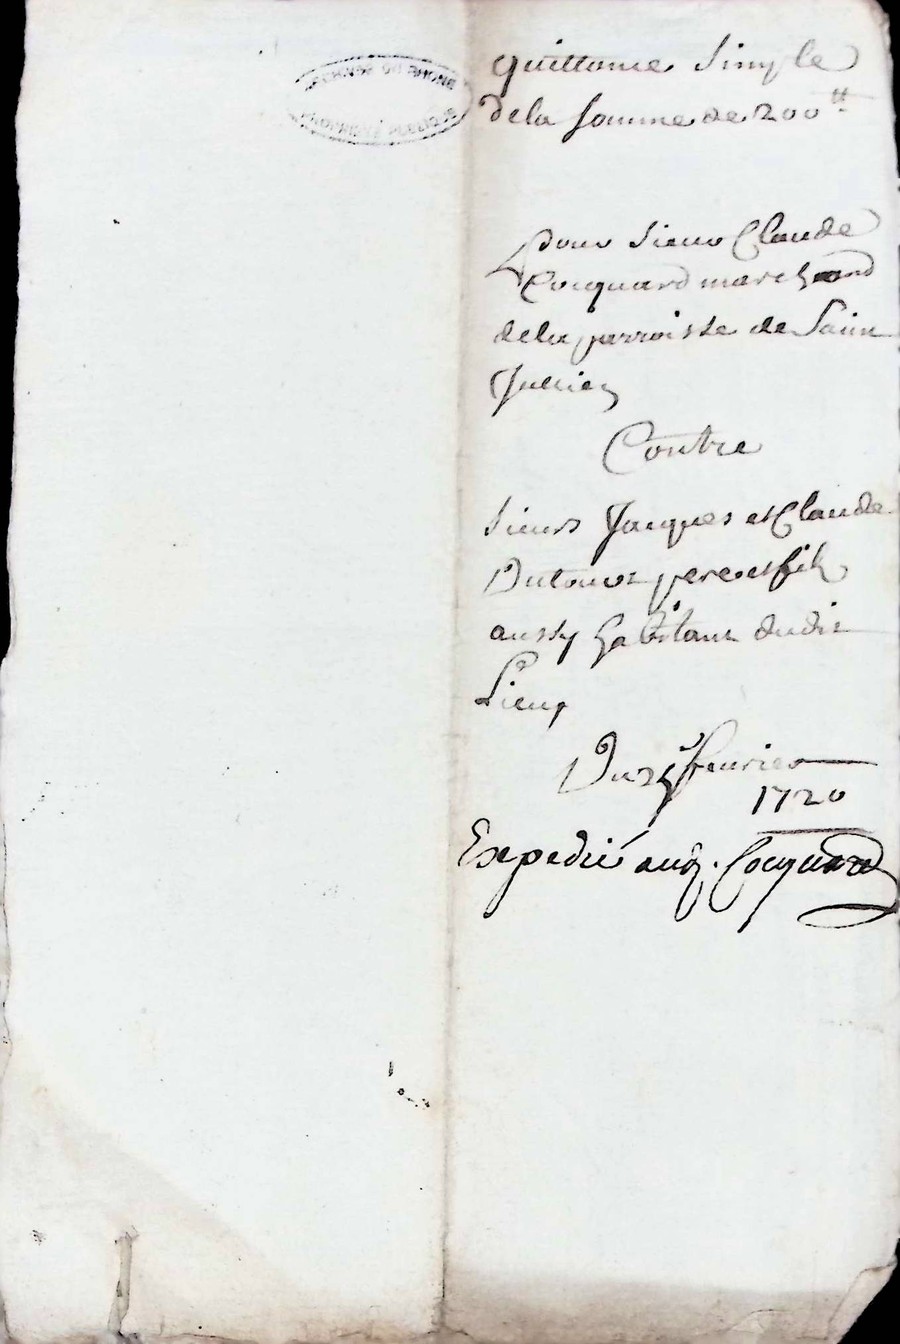 ARCHIVES DU RHONE
PROPRIÉTÉ PUBLIQUE
quittance Simple
dela somme de 200 ₶
pour sieur Claude
Cocquard marchand
dela parroisse de Sain
Jullien
Contre
Sieurs Jacques et Claude
Dutour pere et fils
aussy habitans dudit
Lieux
Du fevrier
1720
Expedié aud. Cocquard